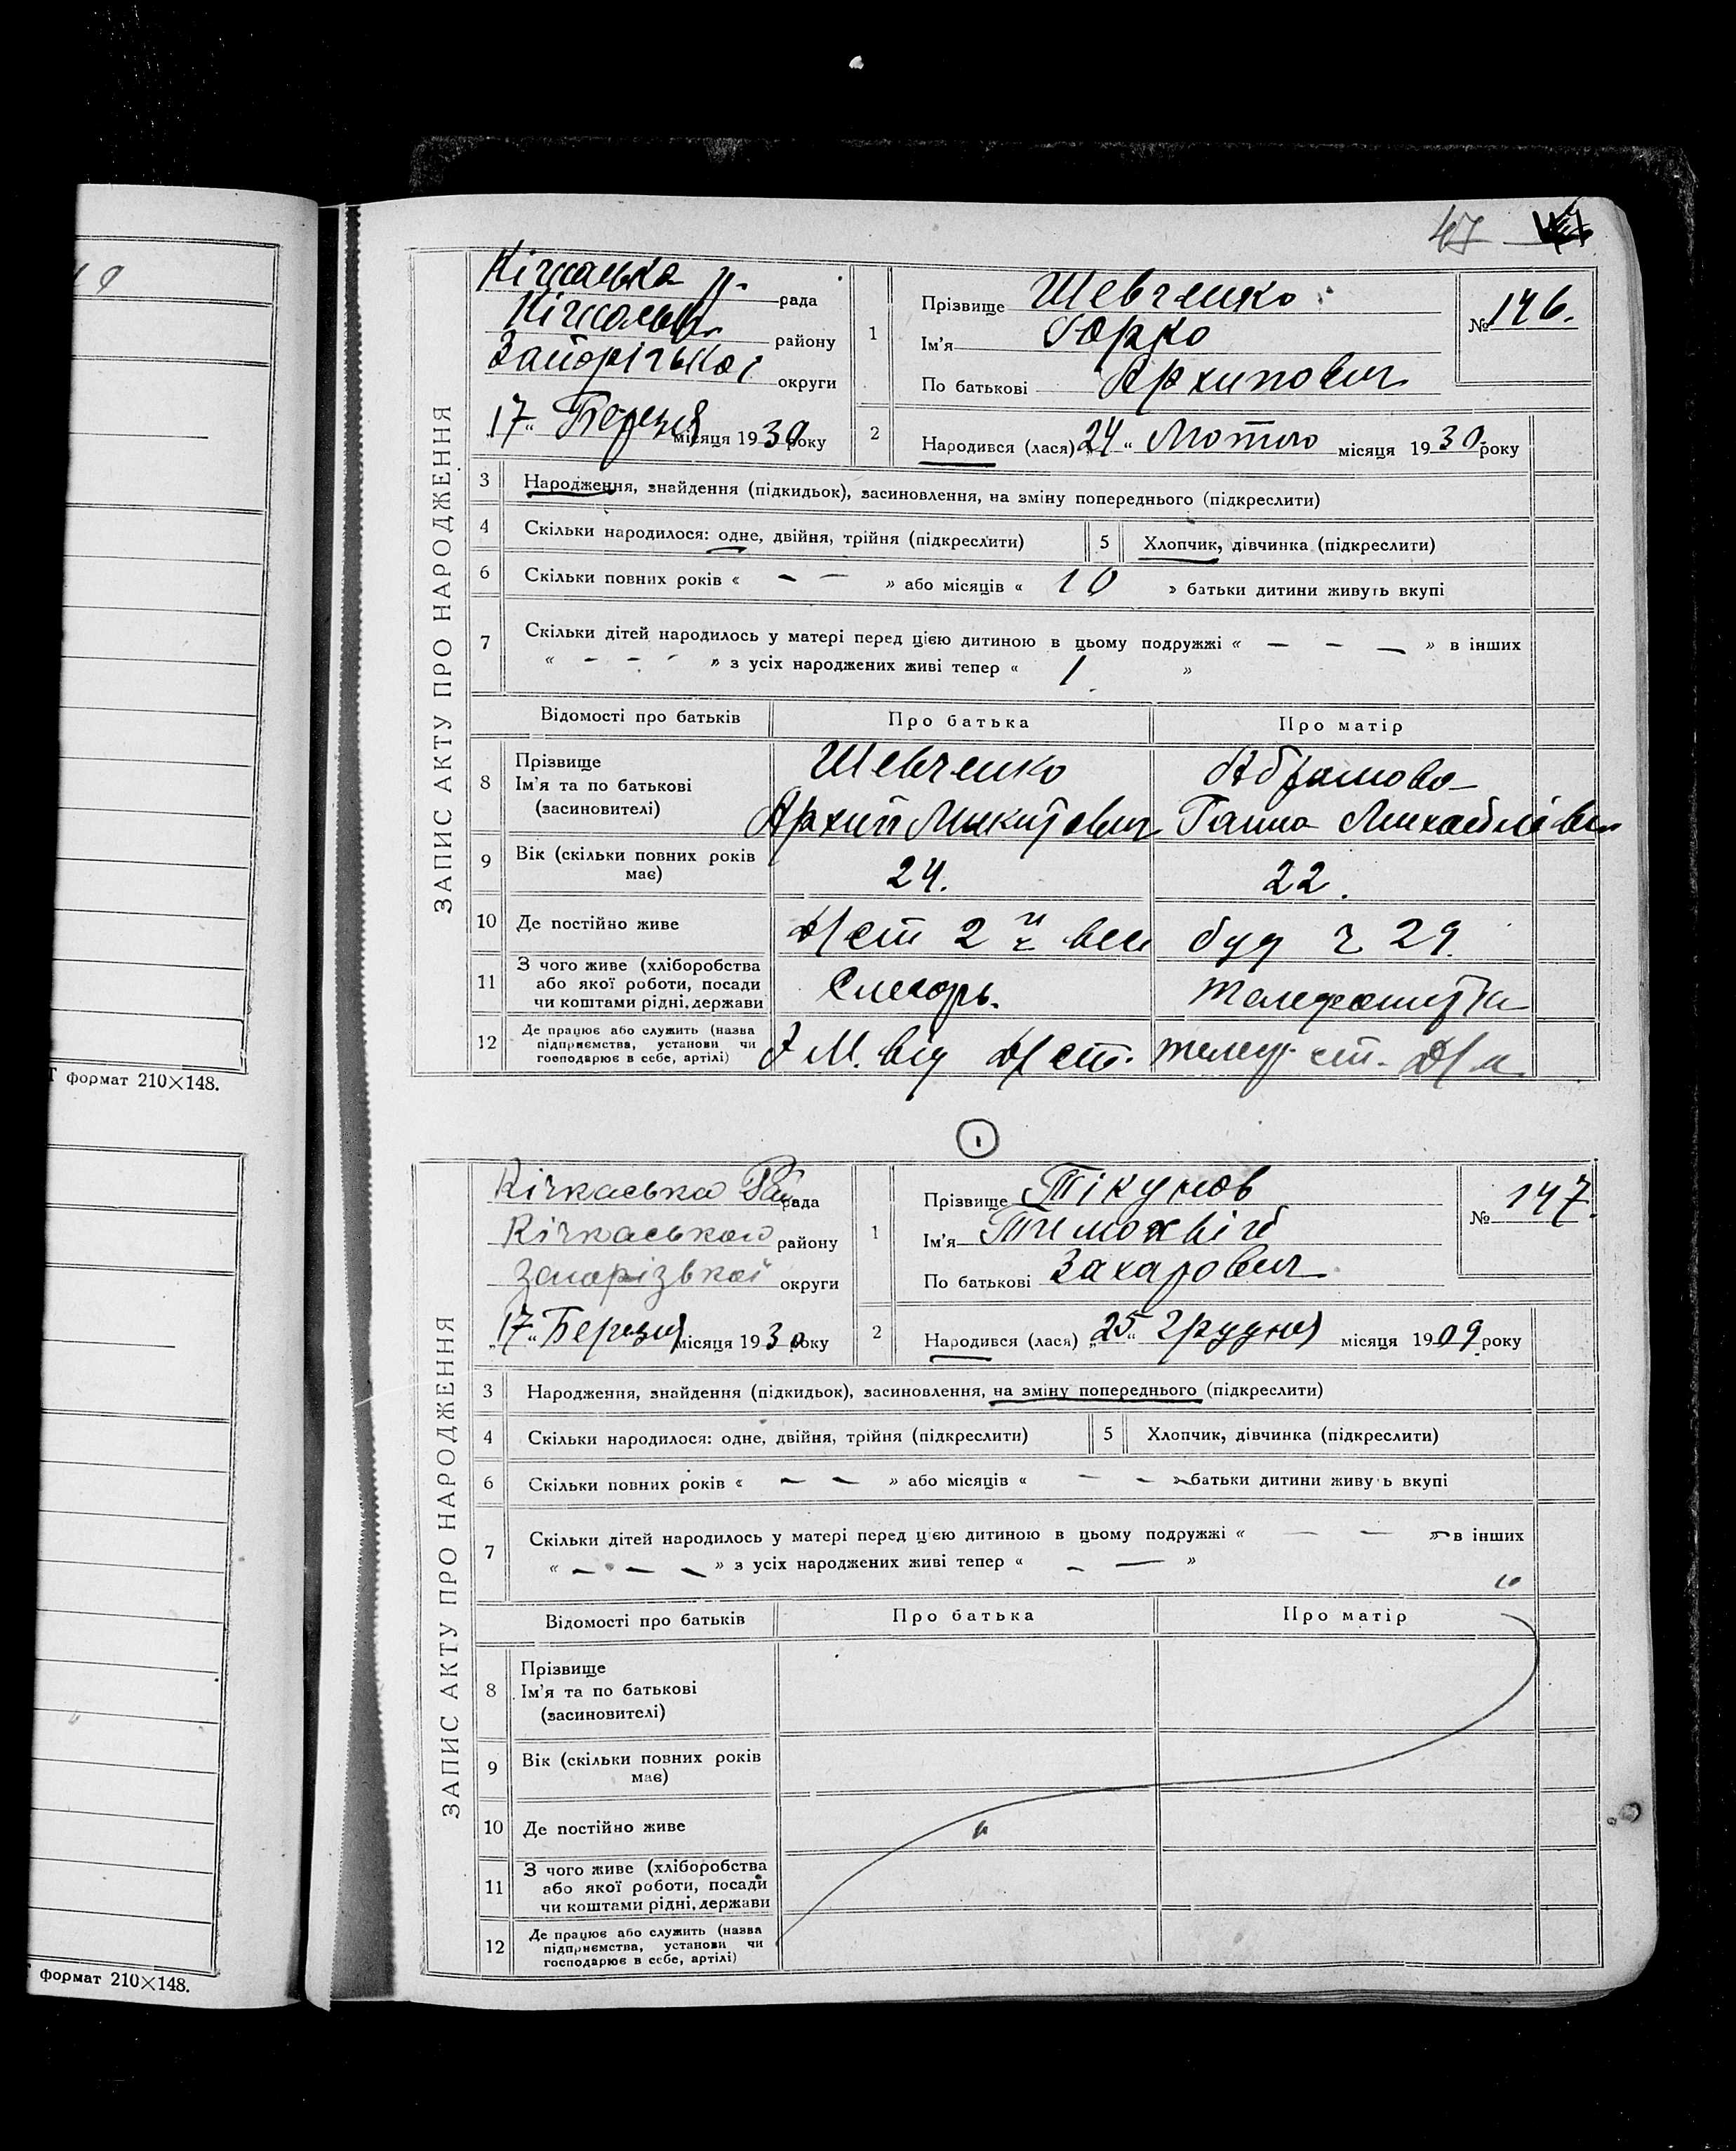 47
Т формат 210×148.
формат 210×148.
ЗАПИС АКТУ ПРО НАРОДЖЕННЯ
Кічкаська р. рада
району
Запорізької округи
„17“ Березня місяця 1930 року
1 Прізвище Шевченко
Ім'я Юрко
По батькові Архипович
№ 146.
2 Народився (лася) 24 “ Лютого місяця 1930 року
3 Народження, знайдення (підкидьок), засиновлення, на зміну попереднього (підкреслити)
4 Скільки народилося: одне, двійня, трійня (підкреслити) 5 Хлопчик, дівчинка (підкреслити)
6 Скільки повних років « – – » або місяців « 10 » батьки дитини живуть вкупі
7 Скільки дітей народилось у матері перед цією дитиною в цьому подружжі « – – – » в інших
« - - - » з усіх народжених живі тепер « 1 »
Відомості про батьків Про батька Про матір
8 Прізвище Ім'я та по батькові (засиновителі)
Шевченко Абрамова
Архип Микитович Ганна Михайлівн
9 Вік (скільки повних років має) 24. 22.
10 Де постійно живе Д/ст 2й вес буд ч 29.
11 З чого живе (хліборобства або якої роботи, посади чи коштами рідні, держави
Слюсарь. телефоністка
12 Де працює або служить (назва підприємства, установи чи господарює в себе, артілі)
М. від Д/ст. телеф. ст. Д/
1
ЗАПИС АКТУ ПРО НАРОДЖЕННЯ
Кічкаська рада
Кічкаського району
Запорізької округи
„17“ Березня місяця 1930 року
1 Прізвище Тікунов
Ім'я
По батькові Захарович
№ 147.
2 Народився (лася) „25“ Грудня місяця 1909 року
3 Народження, знайдення (підкидьок), засиновлення, на зміну попереднього (підкреслити)
4 Скільки народилося: одне, двійня, трійня (підкреслити) 5 Хлопчик, дівчинка (підкреслити)
6 Скільки повних років « – – » або місяців « – – » батьки дитини живуть вкупі
7 Скільки дітей народилось у матері перед цією дитиною в цьому подружжі « — — » в інших
« – – – » з усіх народжених живі тепер « – — »
Відомості про батьків Про батька Про матір
8 Прізвище
Ім'я та по батькові
(засиновителі)
9 Вік (скільки повних років
має)
10 Де постійно живе
11 З чого живе (хліборобства
або якої роботи, посади
чи коштами рідні, держави
12 Де працює або служить (назва
підприємства, установи чи
господарює в себе, артілі)